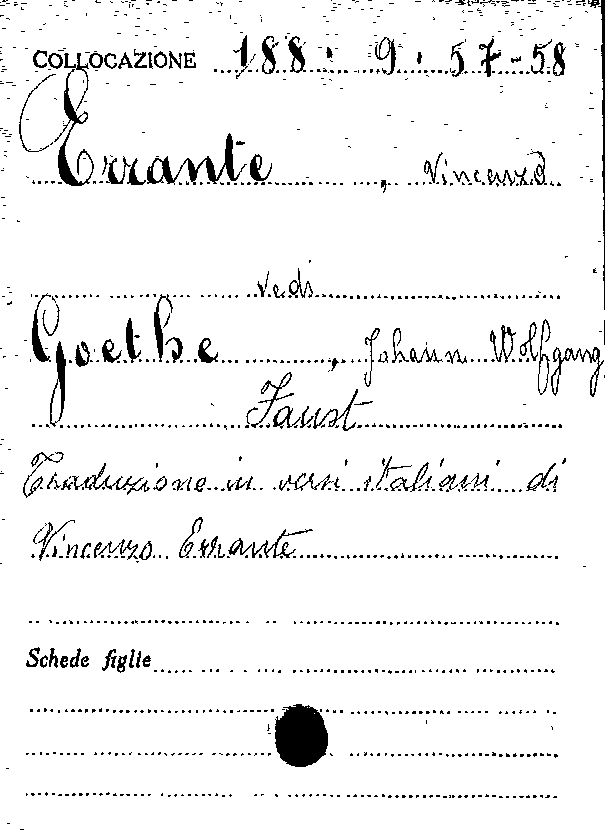 COLLOCAZIONE 188. 9. 57-58
Errante, Vincenzo
vedi
Goethe, Johann Wolfgang
Faust
Traduzione in versi italiani di
Vincenzo Errante
Schede figlie